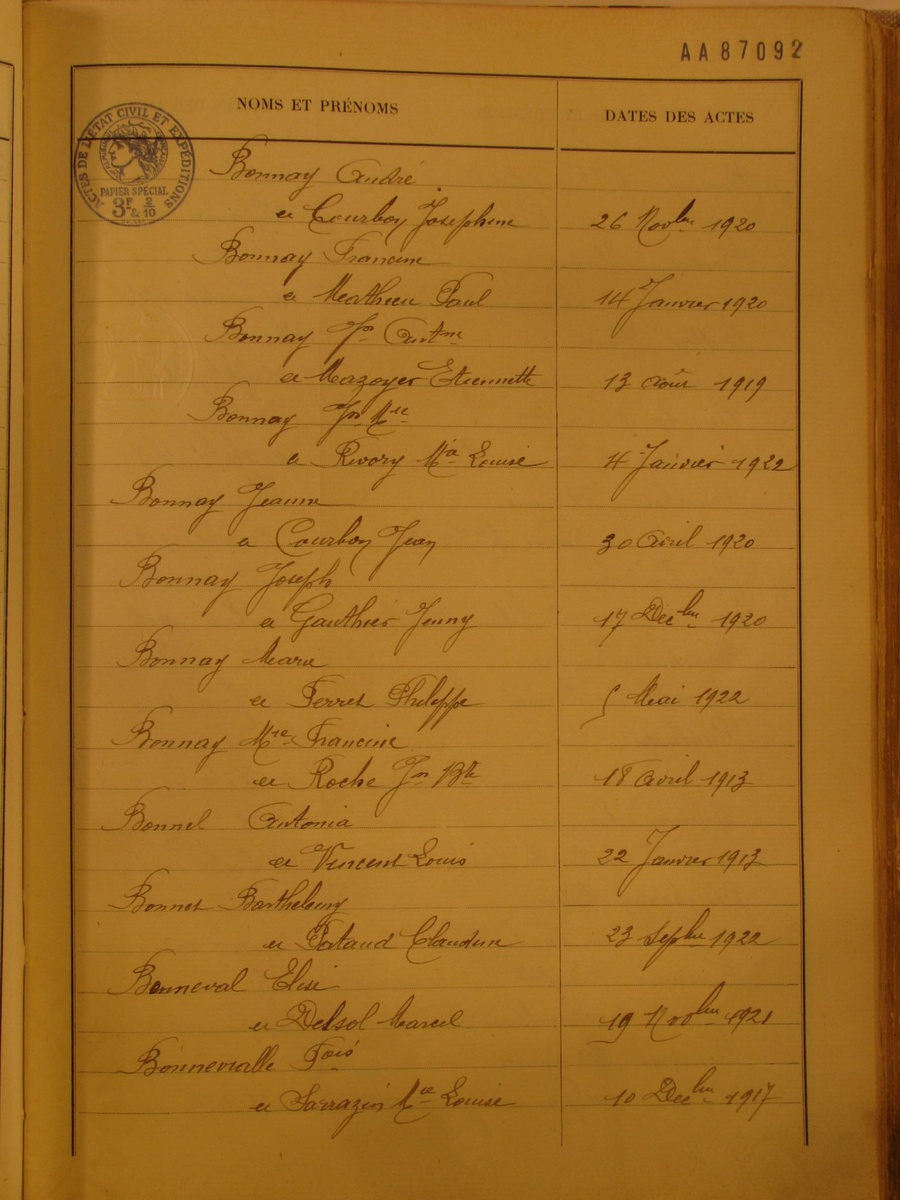 AA87092
NOMS ET PRÉNOMS
DATES DES ACTES
ACTES DE L'ETAT CIVIL ET EXPÉDITIONS
PAPIER SPÉCIAL
3F & 2/10
Bonnay André
et Courbon Josephine 26 Novbre 1920
Bonnay Francine
et Mathieu Paul 14 Janvier 1920
Bonnay Jn Antne
et Mazoyer Etiennette 13 Août 1919
Bonnay Jn Mie
et Rivory Mie Louise 4 Janvier 1922
Bonnay Jeanne
et Courbon Jean 30 Avril 1920
Bonnay Joseph
et Gauthier Jenny 17 Decbre 1920
Bonnay Marie
et Ferret Philippe 5 Mai 1922
Bonnay Mie Francine
et Roche Jn Bte 18 Avril 1913
Bonnel Antonia
et Vincent Louis 22 Janvier 1913
Bonnet Barthelemy
et Pataud Claudine 23 Septbre 1922
Bonneval Elise
et Delsol Marcel 19 Novbre 1921
Bonnevialle Fois
et Sarrazin Mie Louise 10 Decbre 1917